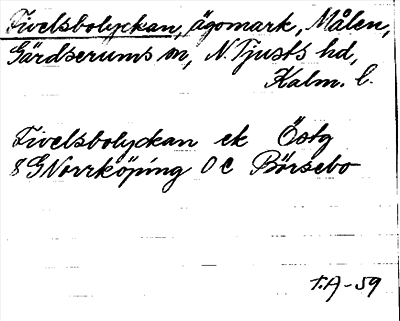 Tivelsbolyckan, ägomark, Målen,
Gärdserums sn, N. Tjusts hd,
Kalm. l.
Tivelsbolyckan ek Östg
8 G Norrköping 0 c Börsebo
T.A-59